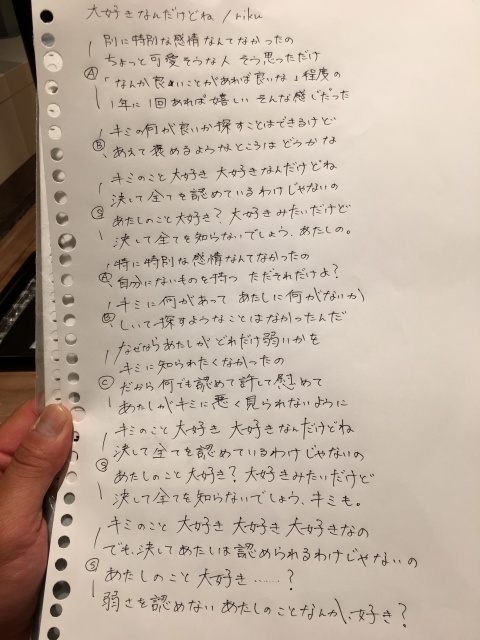 大好きなんだけどね / riku
別に特別な感情なんてなかったの
ちょっと可愛そうな人 そう思っただけ
Ⓐ「なんか良いことがあれば良いな」程度の
1年に1回あれば嬉しい そんな感じだった
キミの何が良いか探すことはできるけど
Ⓑ あえて褒めるようなところは どうかな
キミのこと 大好き 大好きなんだけどね
決して全てを認めているわけじゃないの
Ⓢ あたしのこと大好き? 大好きみたいだけど
決して全てを知らないでしょう、あたしの。
特に特別な感情なんてなかったの
Ⓐ 自分にないものを持つ ただそれだけよ?
キミに何があって あたしに何がないか
Ⓑ しいて探すようなことはなかったんだ
なぜならあたしがどれだけ弱いかを
キミに知られたくなかったの
Ⓒ だから何でも認めて許して慰めて
あたしがキミに悪く見られないように
キミのこと 大好き 大好きなんだけどね
決して全てを認めているわけじゃないの
Ⓢ あたしのこと大好き? 大好きみたいだけど
決して全てを知らないでしょう、キミも。
キミのこと 大好き 大好き 大好きなの
でも、決してあたしは認められるわけじゃないの
Ⓢ あたしのこと 大好き……?
弱さを認めない あたしのことなんか、好き?